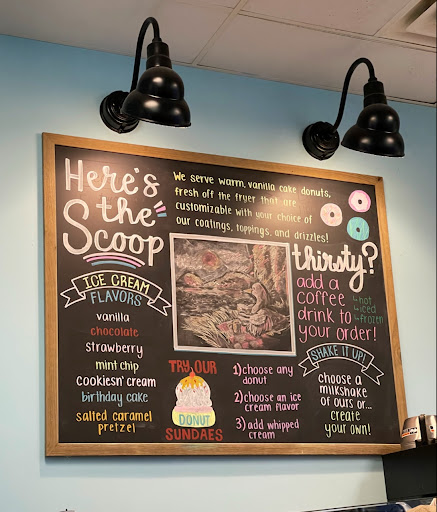 Here's
the
Scoop
We serve warm, vanilla cake donuts,
fresh off the fryer that are
customizable with your choice of
our coatings, toppings, and drizzles!
ICE CREAM
FLAVORS
vanilla
chocolate
strawberry
mint chip
cookiesn' cream
birthday cake
salted caramel
pretzel
TRY OUR
DONUT
SUNDAES
1) choose any
donut
2) choose an ice
cream flavor
3) add whipped
cream
thirsty?
add a
coffee
drink to
your order!
hot
iced
frozen
SHAKE IT UP!
choose a
milkshake
of ours or...
create
your own!